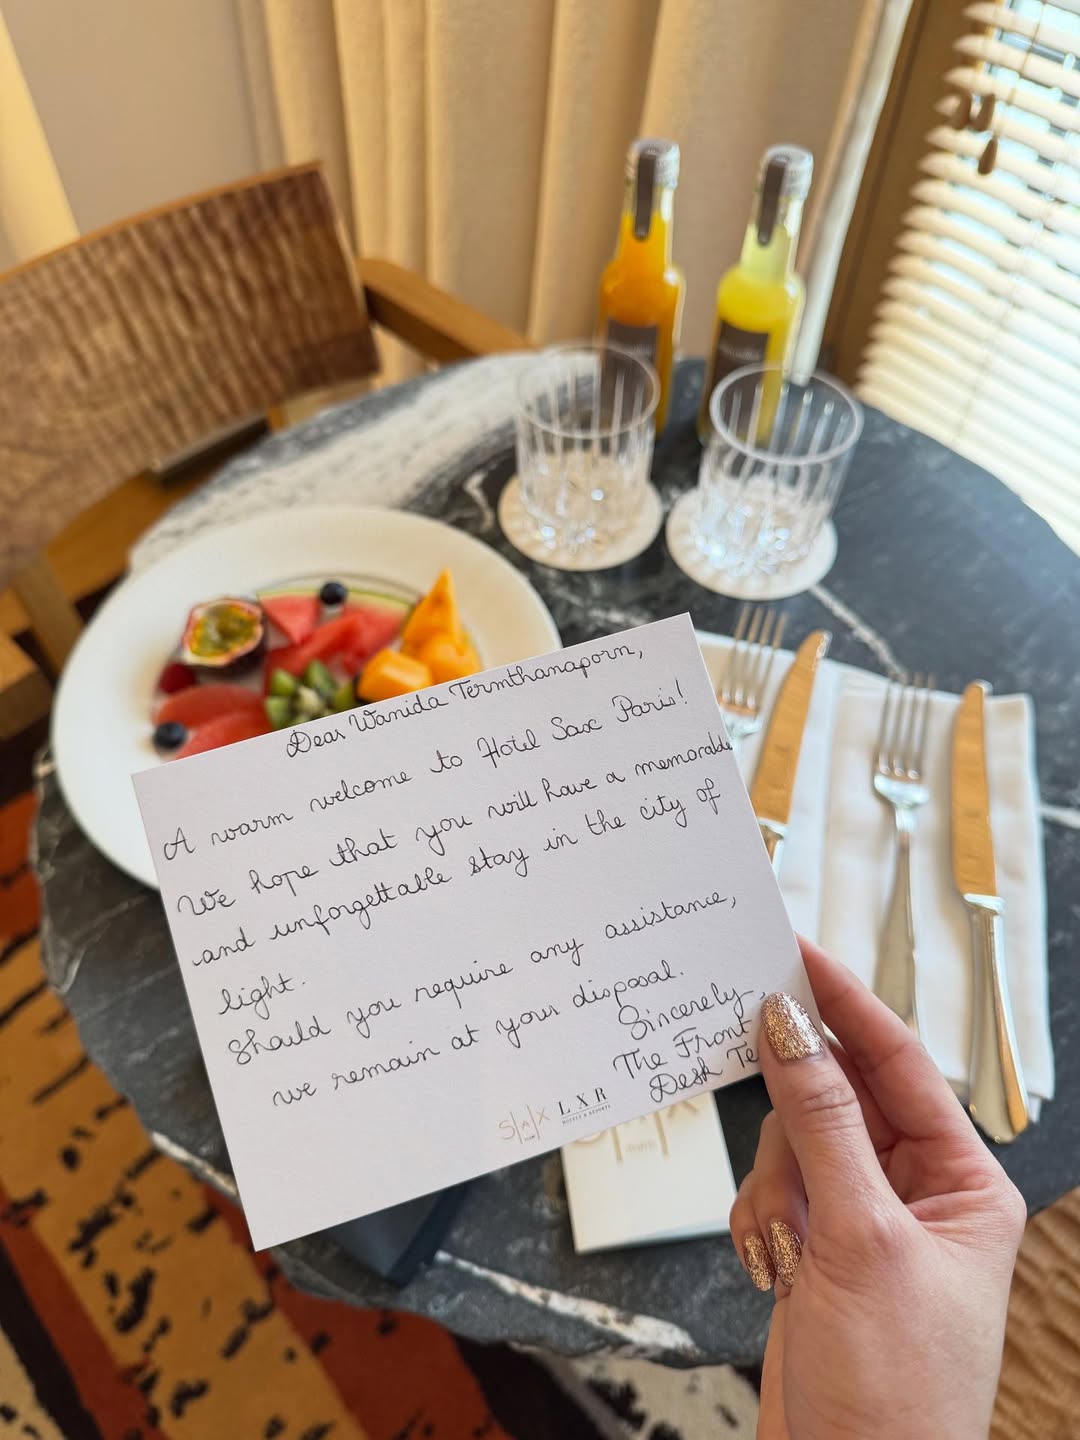 Dear Wanida Termthanaporn,
A warm welcome to Hotel Sax Paris!
We hope that you will have a memorable
and unforgettable stay in the city of
light.
Should you require any assistance,
we remain at your disposal.
Sincerely,
The Front
Desk Te
SAX
PARIS
LXR
HOTELS & RESORTS
SAX
PARIS